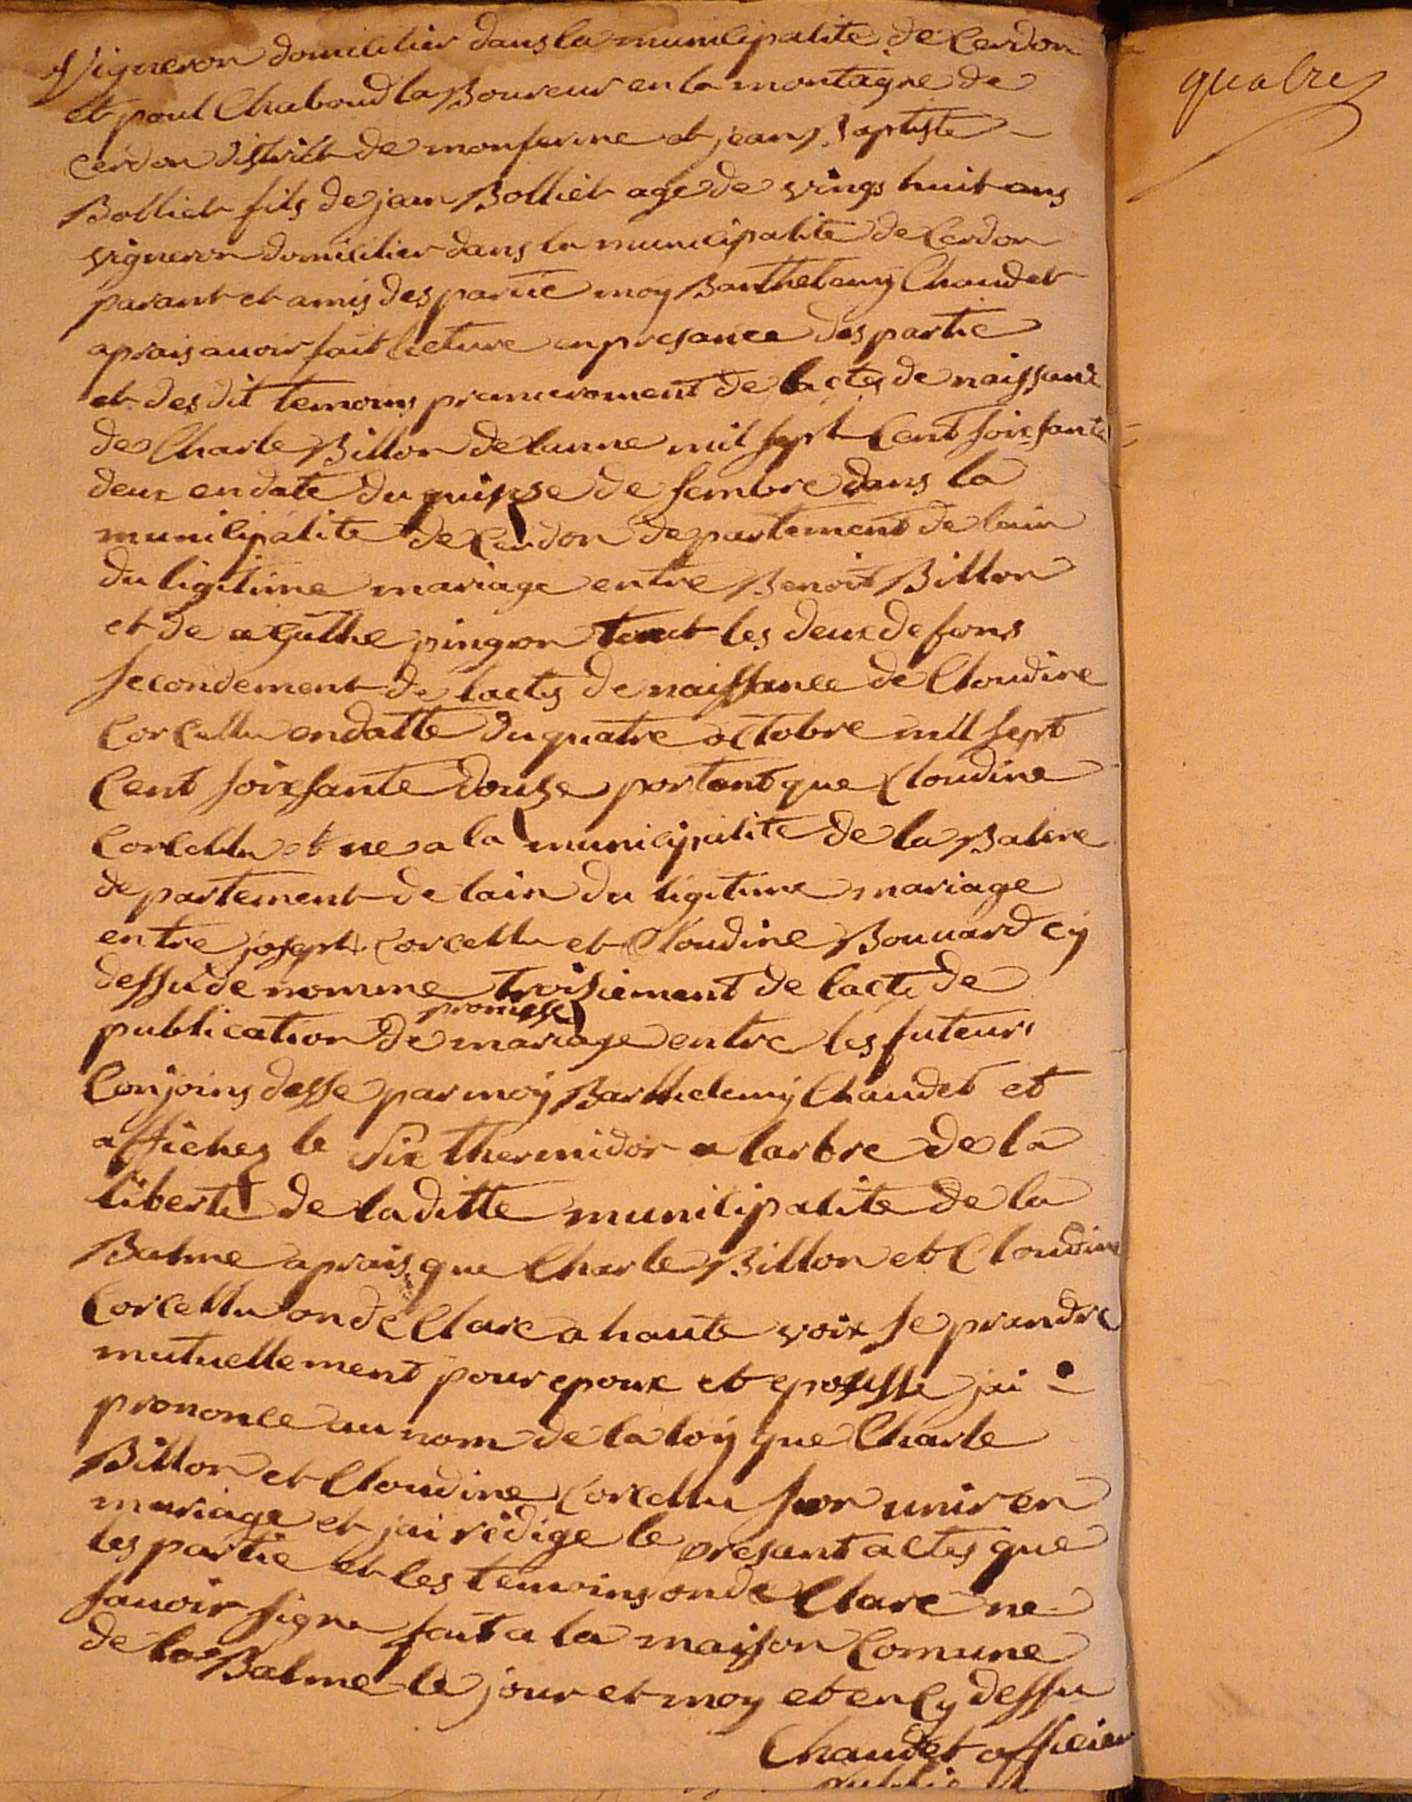 Vigneron domicilier dans la municipalite de Cerdon
et poul Chaboud la Boureur en la montagne de
Cerdon district de monferme et jean Baptiste
Bolliet fils de jean Bolliet age de vings huit ans
vigneron domicilier dans la municipalite de Cerdon
parant et amis des partie moy Barthelemy Chaudet
aprais avoir fait lecture en presance des partie
et des dit temoins premierement de lactes de naissance
de Charle Billon de lanne mil sept Cent soixsante
deux en date du quinse de sembre dans la
municipalite de Cerdon departement de lain
du ligitime mariage entre Benoit Billon
et de agathe pingon tout les deux defuns
secondement de lactes de naissance de Cloudine
Corcellu en datte du quatre octobre mil sept
Cent soixsante douse portant que Cloudine
Corcellu et ne a la municipalite de la Balme
departement de lain du ligitime mariage
entre joseph Corcellu et Cloudine Bouvard cy
dessu de nomme troisiement de lacte de
promesse
publication de mariage entre les futeurs
Conjoins desse par moy Barthelemy Chaudet et
affichez le six thermidor a larbre de la
liberte de la ditte municipalite de la
Balme aprais que Charle Billon et Cloudine
Corcellu on de Clare a haute voix se prandre
mutuellement pour epoux et epousse jai
prononce au nom de la loy que Charle
Billon et Cloudine Corcellu son unir en
mariage et jai redige le presant actes que
les partie et les temoins on de Clare ne
savoir signe fait a la maison Comune
de la Balme le jour et moy et en Cy dessu
Chaudet officier
public
quatre